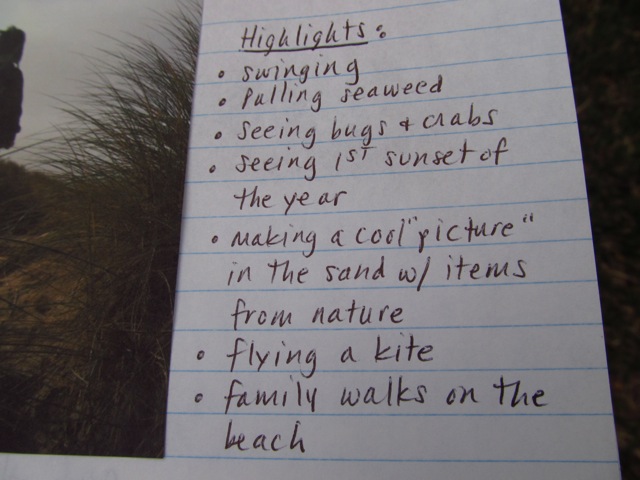 Highlights:
• swinging
• pulling seaweed
• seeing bugs & crabs
• seeing 1ST sunset of
the year
• making a cool "picture"
in the sand w/ items
from nature
• flying a kite
• family walks on the
beach